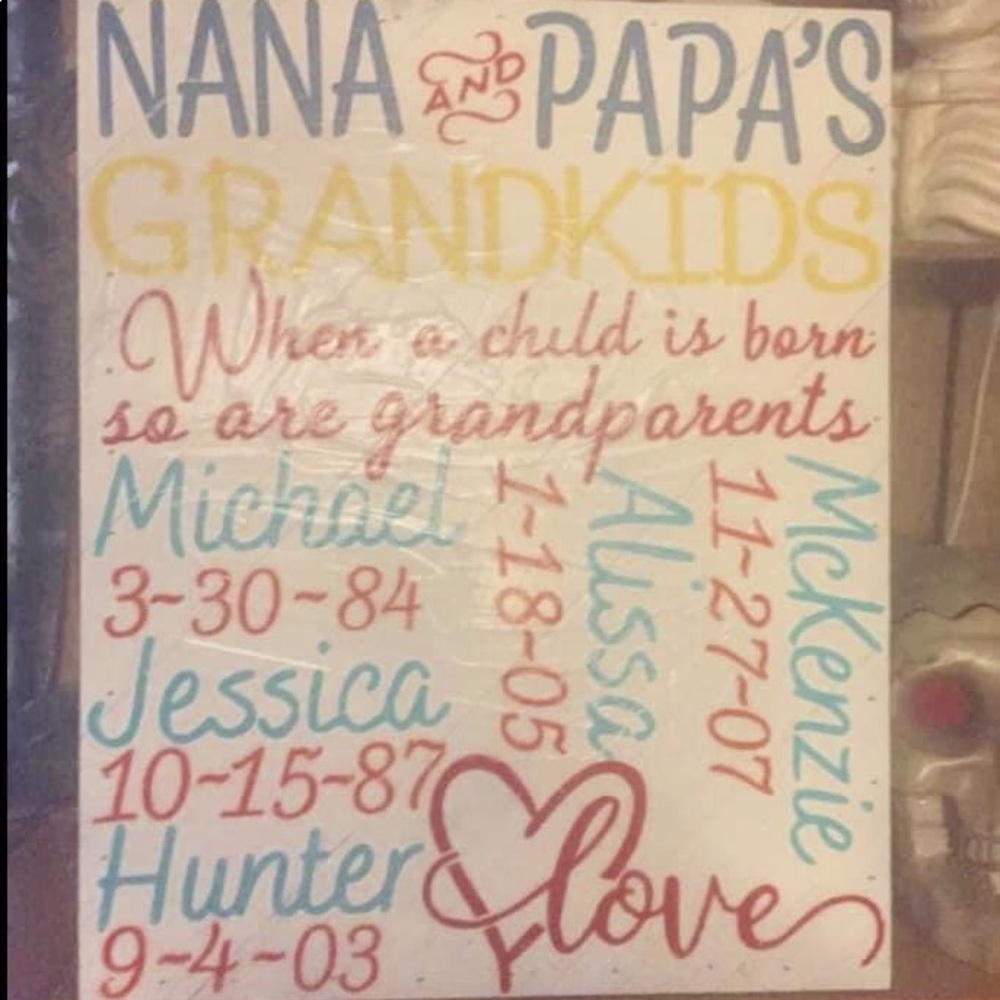 NANA AND PAPA'S
GRANDKIDS
When a child is born
so are grandparents
Michael
3-30-84
Jessica
10-15-87
Hunter
9-4-03
Alissa
1-18-05
McKenzie
11-27-07
love